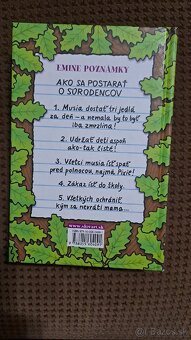 EMINE POZNÁMKY
AKO SA POSTARAŤ
O SÚRODENCOV
1. Musia dostať tri jedlá
za deň – a nemala by to byť
iba zmrzlina!
2. Udržať deti aspoň
ako-tak čisté!
3. Všetci musia ísť spať
pred polnocou, najmä Pixie!
4. Zákaz ísť do školy.
5. Všetkých ochrániť,
kým sa nevráti mama...
www.slovart.sk